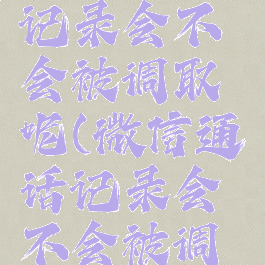 记录会不
会被调取
呢(微信通
话记录会
不会被调